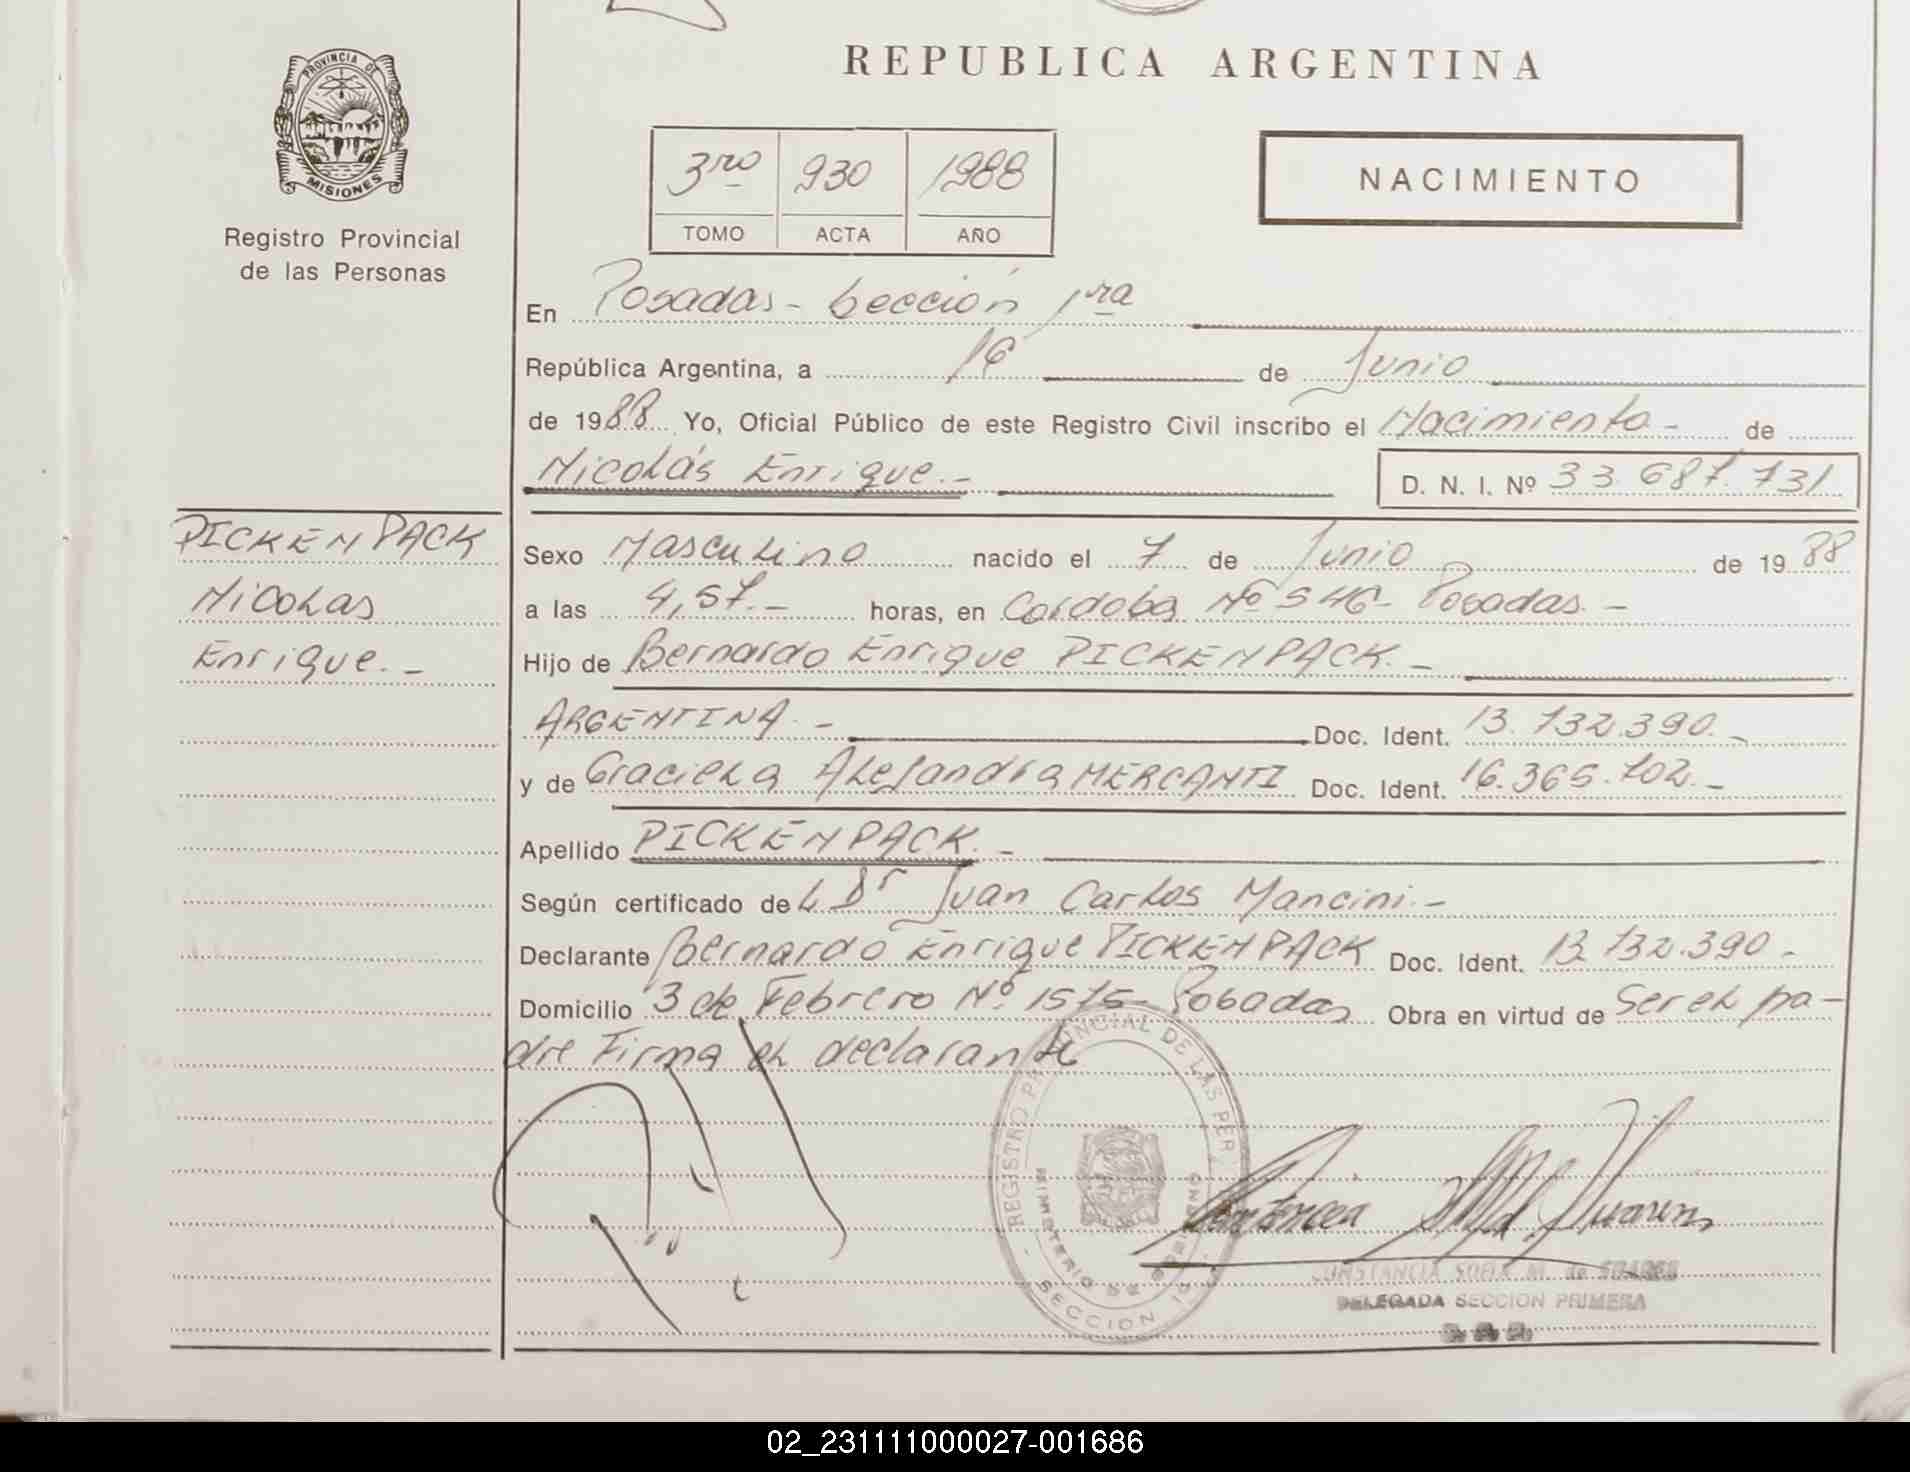 PROVINCIA DE
MISIONES
Registro Provincial
de las Personas
REPUBLICA ARGENTINA
3ro 930 1988
TOMO ACTA AÑO
NACIMIENTO
En Posadas - Sección 1ra
República Argentina, a 16 de Junio
de 1988 Yo, Oficial Público de este Registro Civil inscribo el Nacimiento - de
Nicolás Enrique.-
D. N. I. Nº 33.687.731
PICKENPACK
Nicolas
Enrique. -
Sexo Masculino nacido el 7 de Junio de 1988
a las 4,57.- horas, en Cordoba Nº 546- Posadas. -
Hijo de Bernardo Enrique PICKENPACK. -
ARGENTINA. - Doc. Ident. 13.732.390. -
y de Graciela Alejandra MERCANTI Doc. Ident. 16.365.702. -
Apellido PICKENPACK. -
Según certificado de L Dr Juan Carlos Mancini. -
Declarante Bernardo Enrique PICKENPACK Doc. Ident. 13.732.390 -
Domicilio 3 de Febrero Nº 1575- Posadas Obra en virtud de Ser el pa-
dre Firma el declarante
REGISTRO PROVINCIAL DE LAS PER
MINISTERIO DE GOBIERNO
SECCION 1ª
CONSTANCIA SOFIA M. de SUAREZ
DELEGADA SECCION PRIMERA
02_231111000027-001686